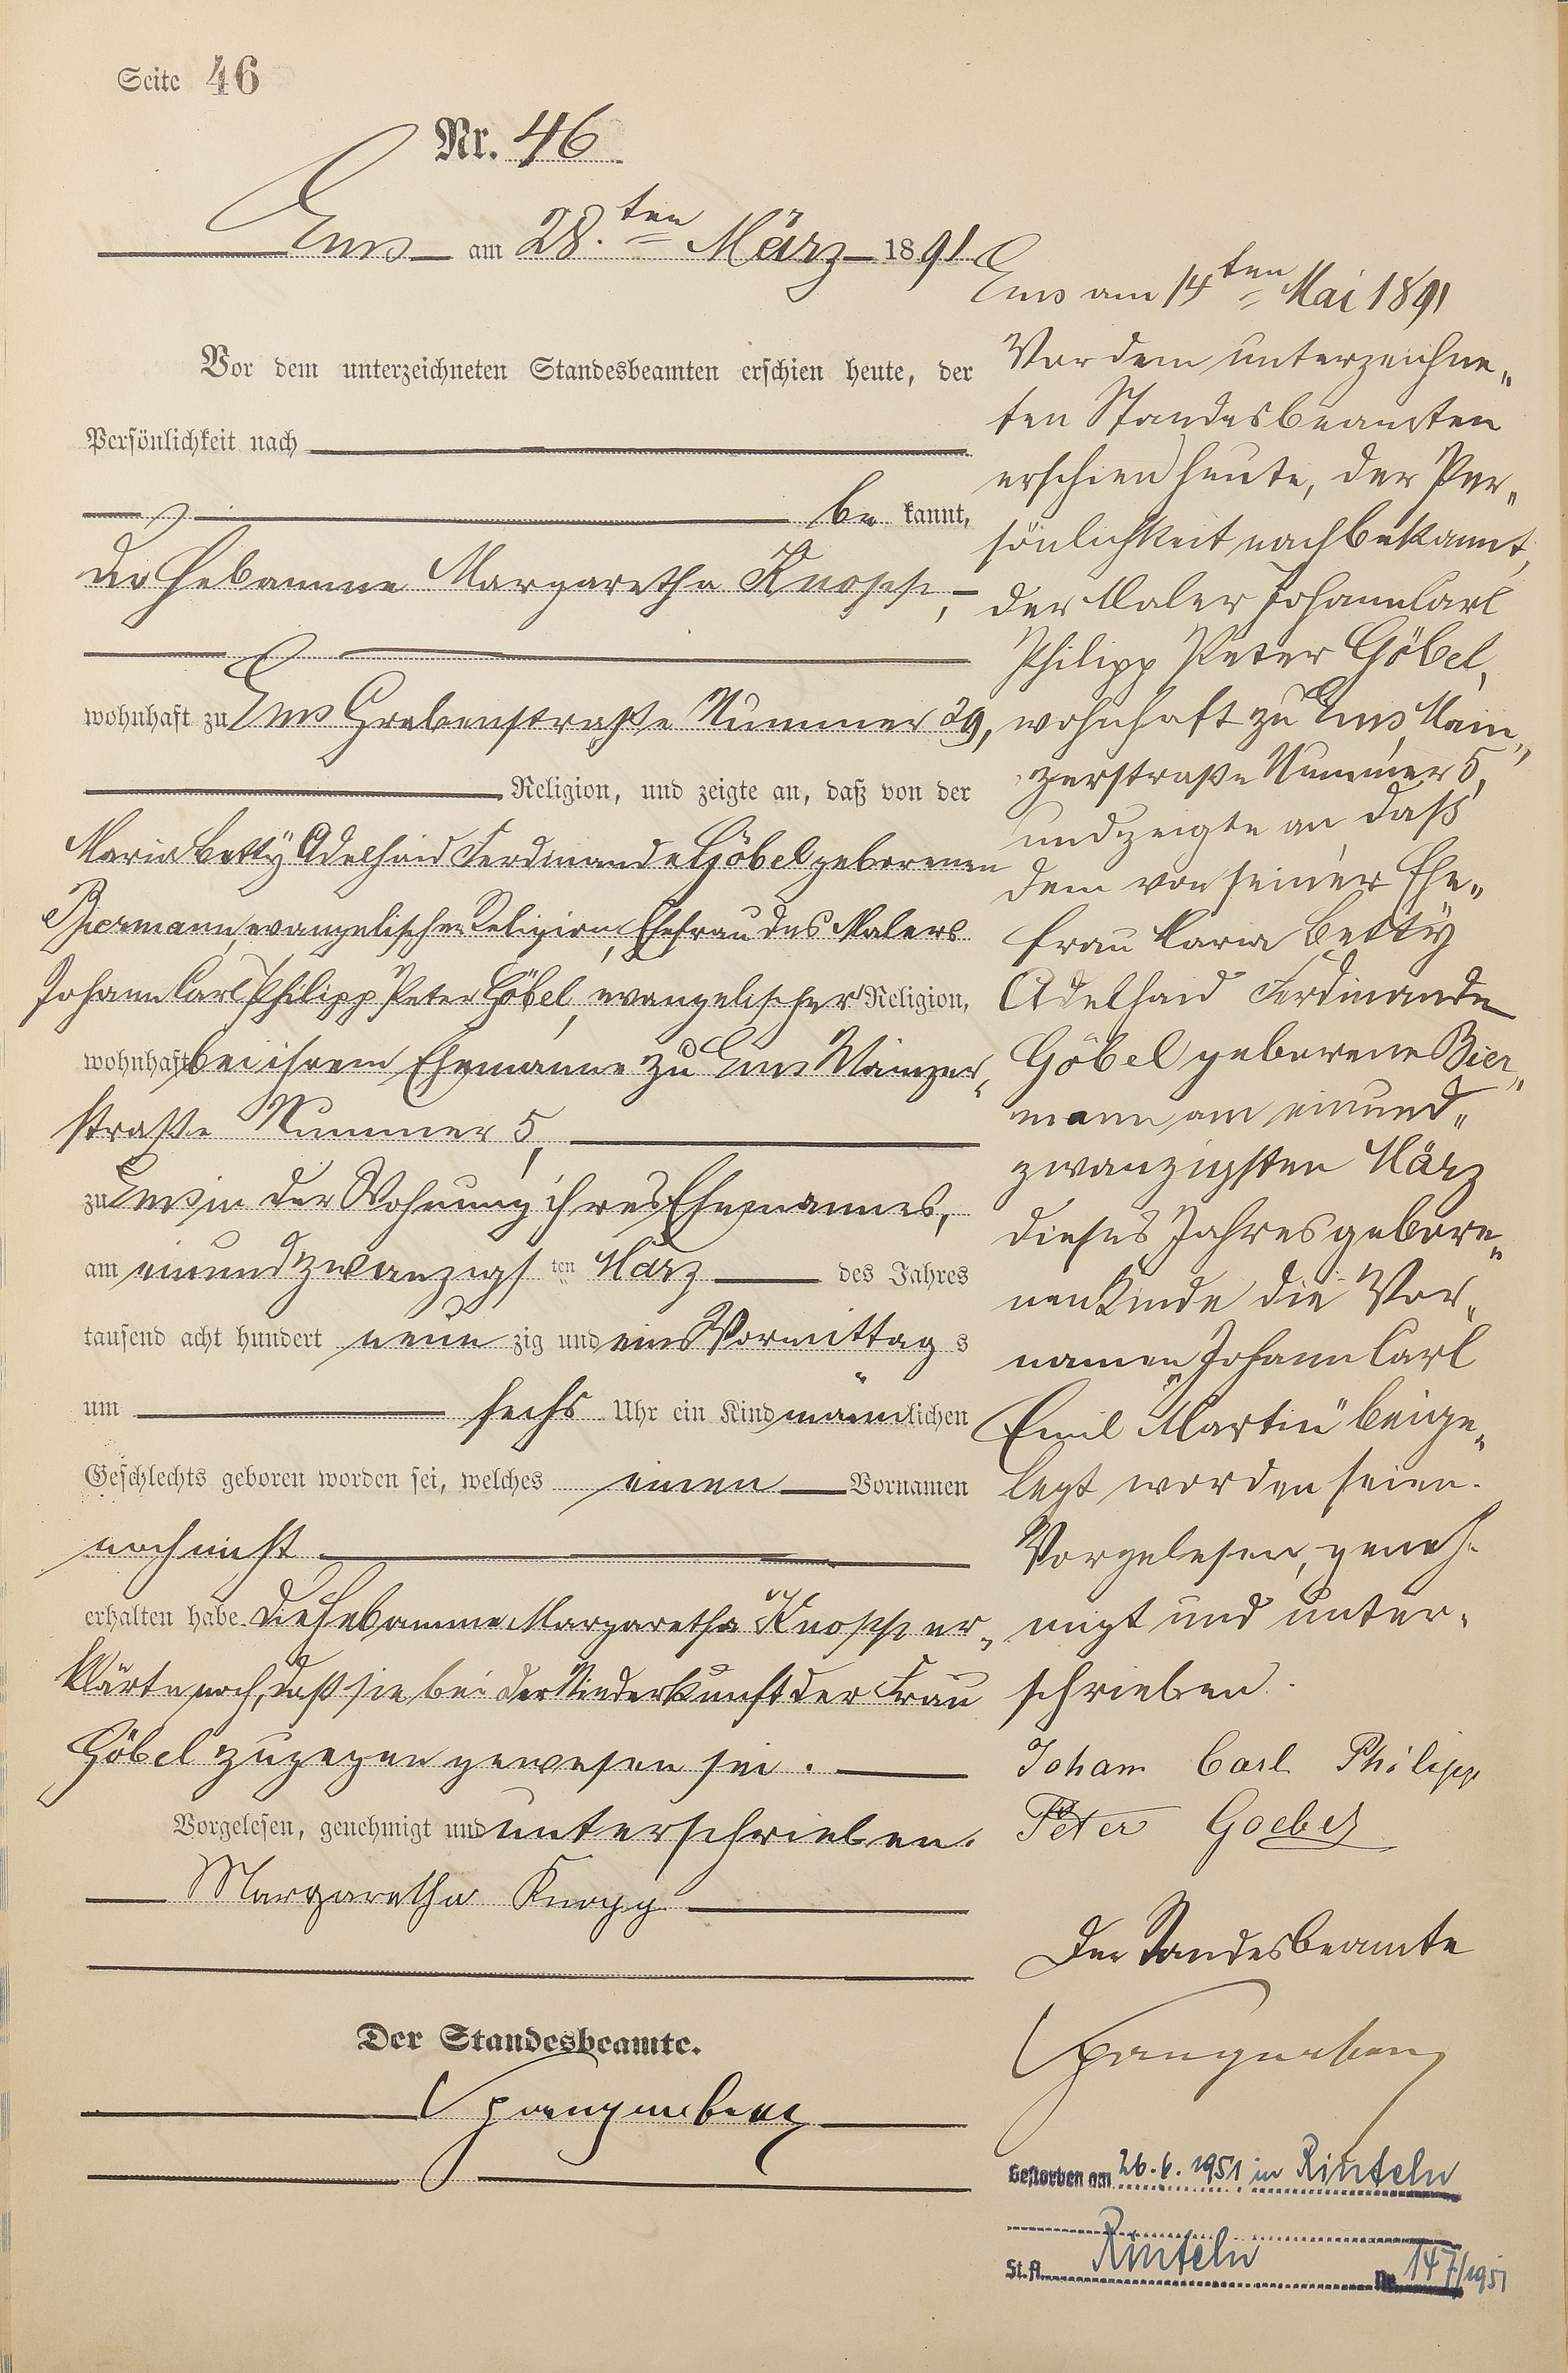 Seite 46
Nr. 46
Ems am 28.ten März 1891
Vor dem unterzeichneten Standesbeamten erschien heute, der
Persönlichkeit nach
be kannt,
die Hebamme Margaretha Knopp,
wohnhaft zu Ems Grabenstraße Nummer 29,
Religion, und zeigte an, daß von der
Maria Betty Adelhaid Ferdinande Göbel geborenen
Biermann, evangelischer Religion, Ehefrau des Malers
Johann Carl Philipp Peter Göbel, evangelischer Religion,
wohnhaft bei ihrem Ehemanne zu Ems Mainzer„
straße Nummer 5,
zu Ems in der Wohnung ihres Ehemannes,
am einundzwanzigs ten März des Jahres
tausend acht hundert neun zig und eins Vormittag s
um sechs Uhr ein Kind männlichen
Geschlechts geboren worden sei, welches einen Vornamen
noch nicht
erhalten habe. Die Hebamme Margaretha Knopp er„
klärte noch, daß sie bei der Niederkunft der Frau
Göbel zugegen gewesen sei.
Vorgelesen, genehmigt und unterschrieben.
Margaretha Knopp
Der Standesbeamte.
Spangenberg
Ems am 14ten Mai 1891
Vor dem unterzeichne„
ten Standesbeamten
erschien heute, der Per„
sönlichkeit nach bekannt,
der Maler Johann Carl
Philipp Peter Göbel,
wohnhaft zu Ems, Main„
zerstraße Nummer 5,
und zeigte an, daß
dem von seiner Ehe„
frau Maria Betty
Adelhaid Ferdinande
Göbel geborene Bier„
mann am einund„
zwanzigsten März
dieses Jahres gebore„
nen Kinde die Vor„
namen „Johann Carl
Emil Martin" beige„
legt worden seien.
Vorgelesen, geneh„
migt und unter„
schrieben.
Johann Carl Philipp
Peter Goebel
Der Standesbeamte
Spangenberg
Gestorben am 26.6.1951 in Rinteln
St.A. Rinteln Nr. 147/1951